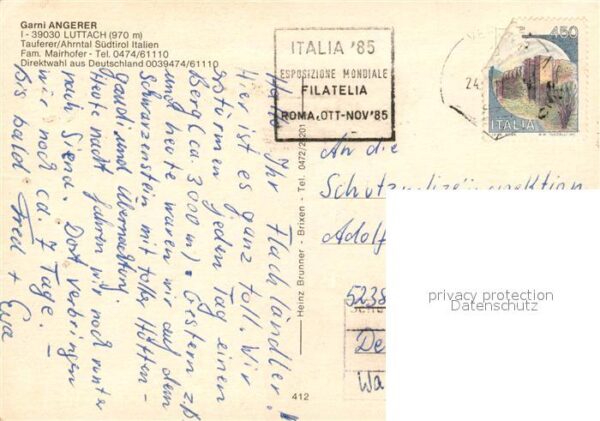 Garni ANGERER
I - 39030 LUTTACH (970 m)
Tauferer/Ahrntal Südtirol Italien
Fam. Mairhofer - Tel. 0474/61110
Direktwahl aus Deutschland 0039474/61110
ITALIA '85
ESPOSIZIONE MONDIALE
FILATELIA
ROMA.OTT-NOV'85
450
ITALIA
24
Hallo Ihr Flachländler!
Hier ist es ganz toll. Wir
erstürmen jeden Tag einen
Berg (ca. 3000 m). Gestern z.B.
und heute waren wir auf dem
Schwarzenstein mit toller Hütten-
gaudi und Übernachtung.
Heute nacht fahren wir noch runter
nach Siena. Dort verbringen
wir noch ca. 7 Tage. –
Bis bald Fred + Eva
Heinz Brunner - Brixen - Tel. 0472/22201
412
An die
Adolf
5238
De
Wa
privacy protection
Datenschutz